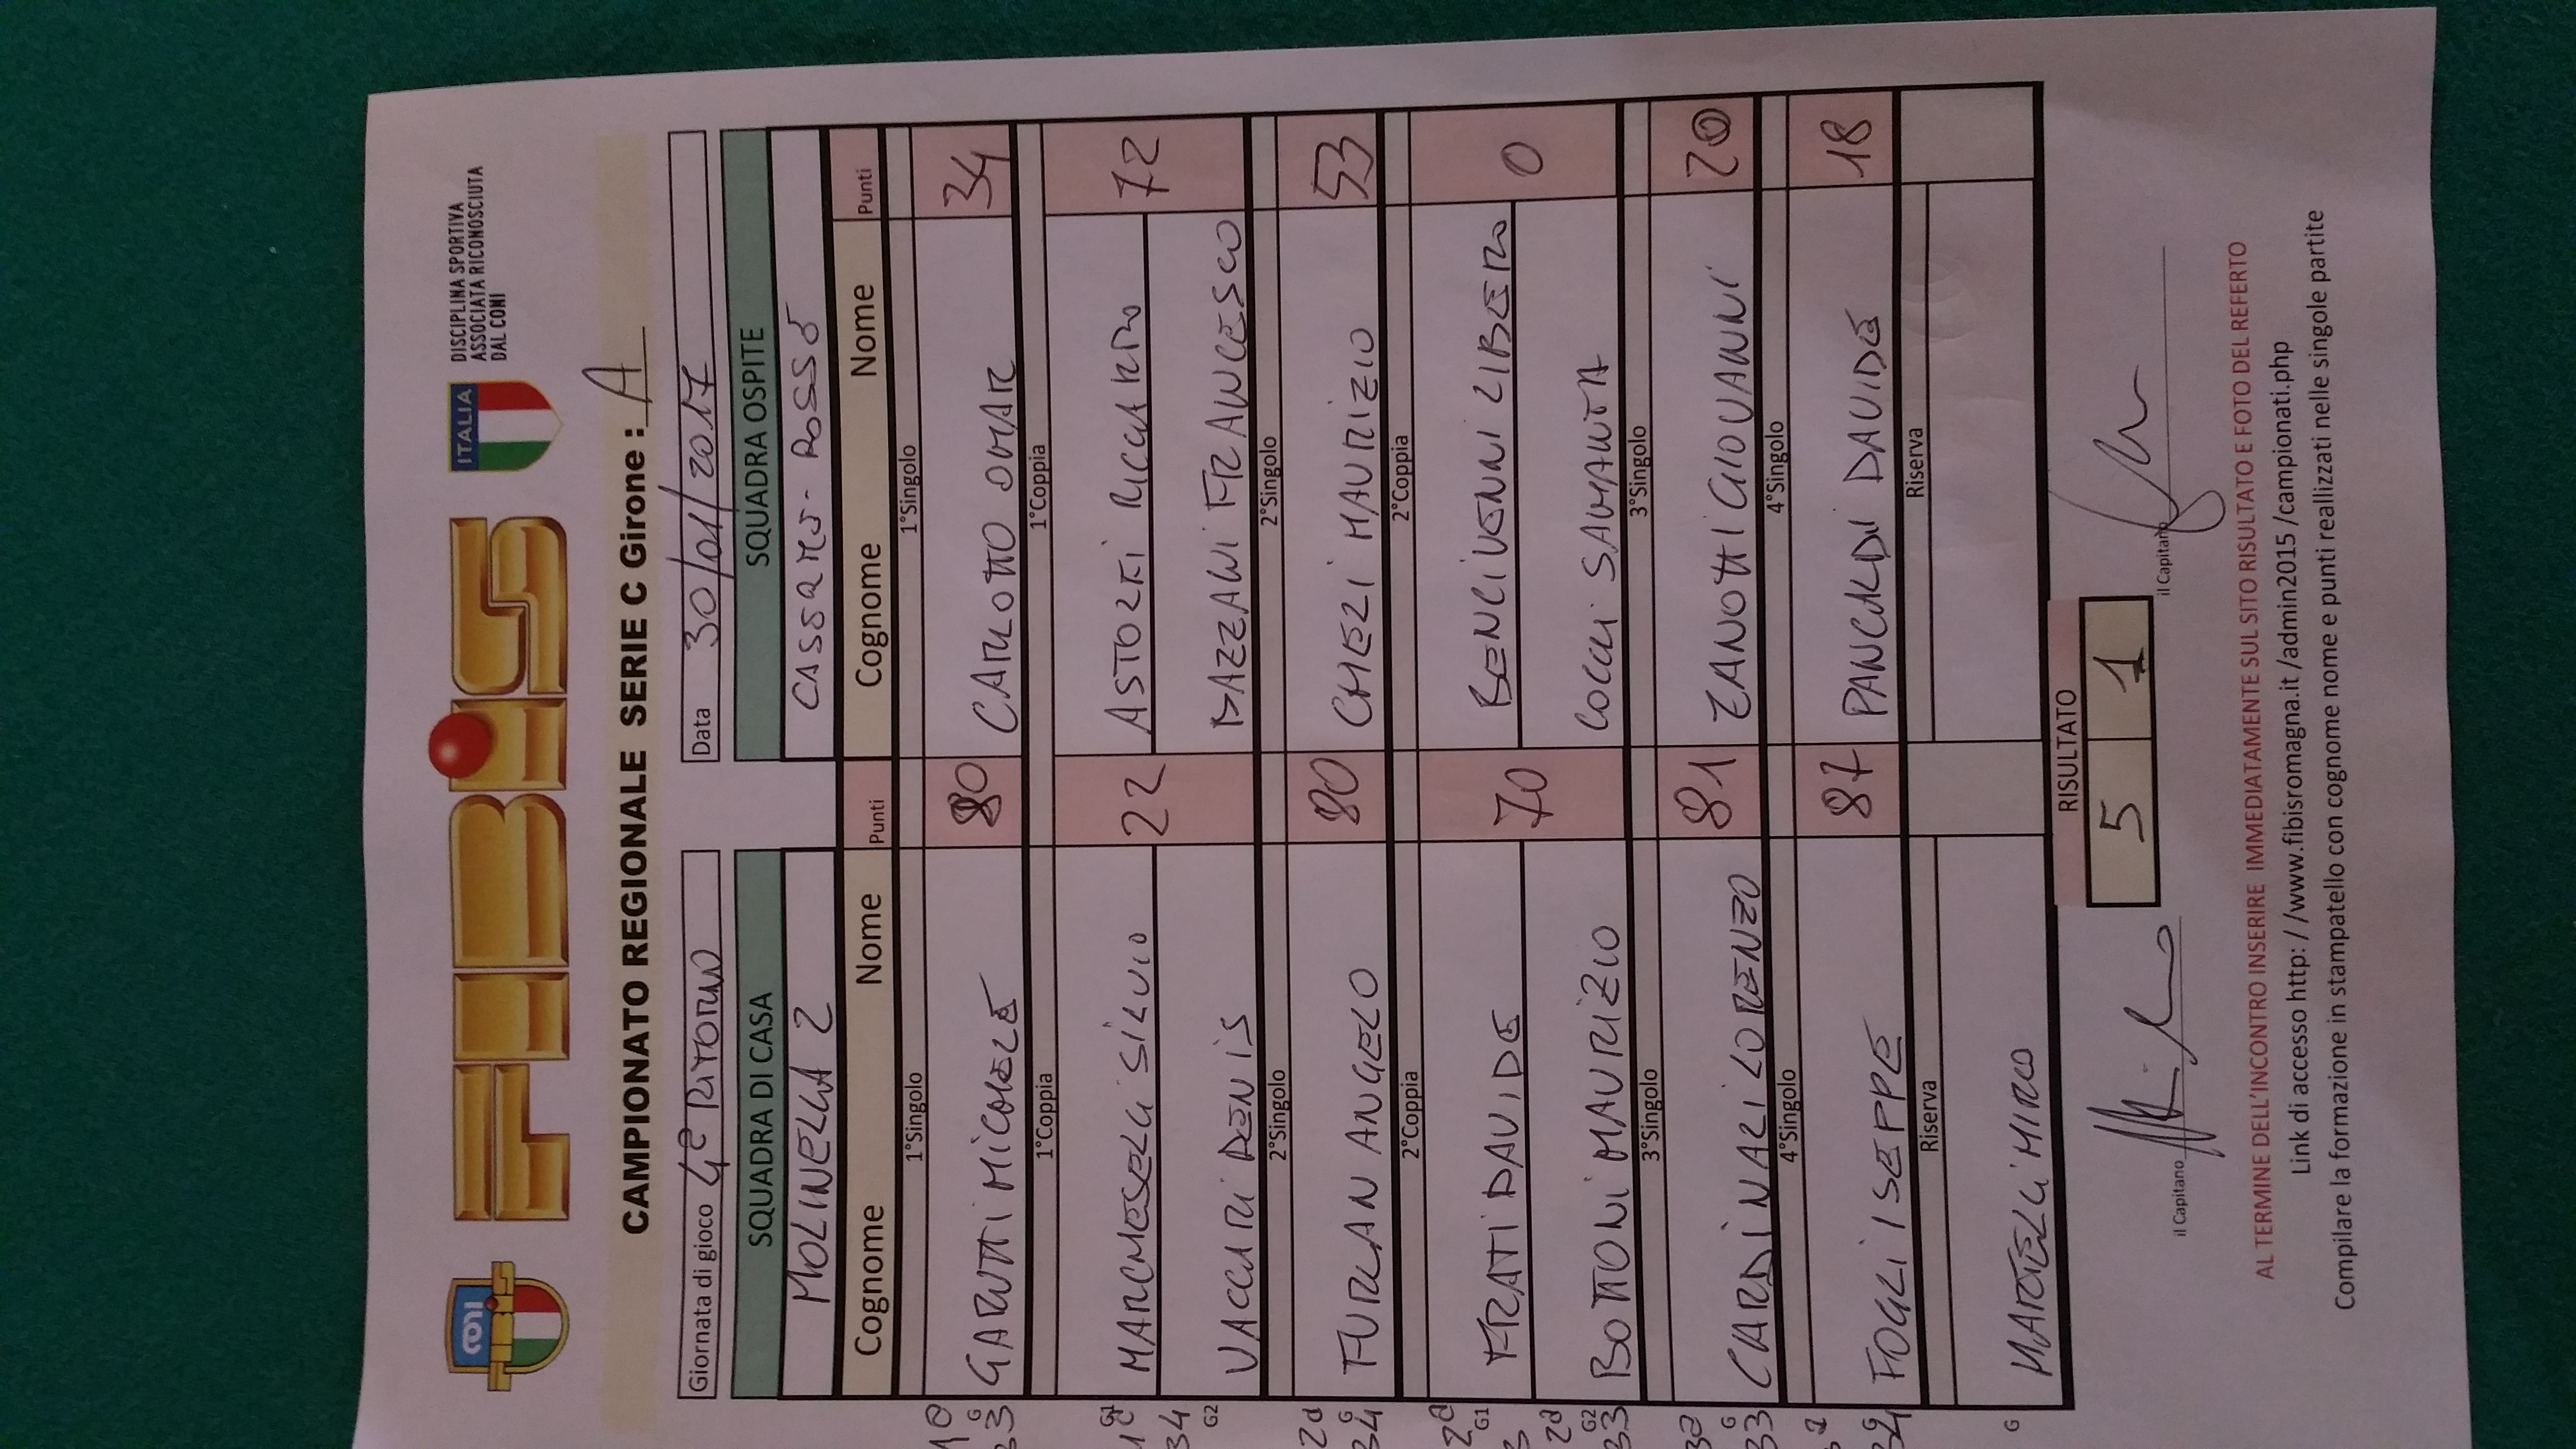 FIBiS
ITALIA
DISCIPLINA SPORTIVA
ASSOCIATA RICONOSCIUTA
DAL CONI
CAMPIONATO REGIONALE SERIE C Girone : A
Giornata di gioco 4° RITORNO Data 30/01/2017
SQUADRA DI CASA SQUADRA OSPITE
MOLINELLA 2 ROSSO
Cognome Nome Punti Cognome Nome Punti
1°Singolo 1°Singolo
GARUTI MICHELE 80 CARLOTTO OMAR 34
1°Coppia 1°Coppia
MARCHESELLI SILVIO 22 ASTORRI RICCARDO 72
VACCARI DENIS BAZZANI FRANCESCO
2°Singolo 2°Singolo
FURLAN ANGELO 80 GHEZI MAURIZIO 53
2°Coppia 2°Coppia
FRATI DAVIDE 70 BENCIVENNI LIBERO 0
BOTTONI MAURIZIO COCCHI SAMANTA
3°Singolo 3°Singolo
CARDINALI LORENZO 81 ZANOTTI GIOVANNI 20
4°Singolo 4°Singolo
FOGLI SEPPE 87 PANCALDI DAVIDE 18
Riserva Riserva
MARTELLI MIRCO
RISULTATO
5 1
il Capitano il Capitano
AL TERMINE DELL'INCONTRO INSERIRE IMMEDIATAMENTE SUL SITO RISULTATO E FOTO DEL REFERTO
Link di accesso http: / /www.fibisromagna.it /admin2015 /campionati.php
Compilare la formazione in stampatello con cognome nome e punti reallizzati nelle singole partite